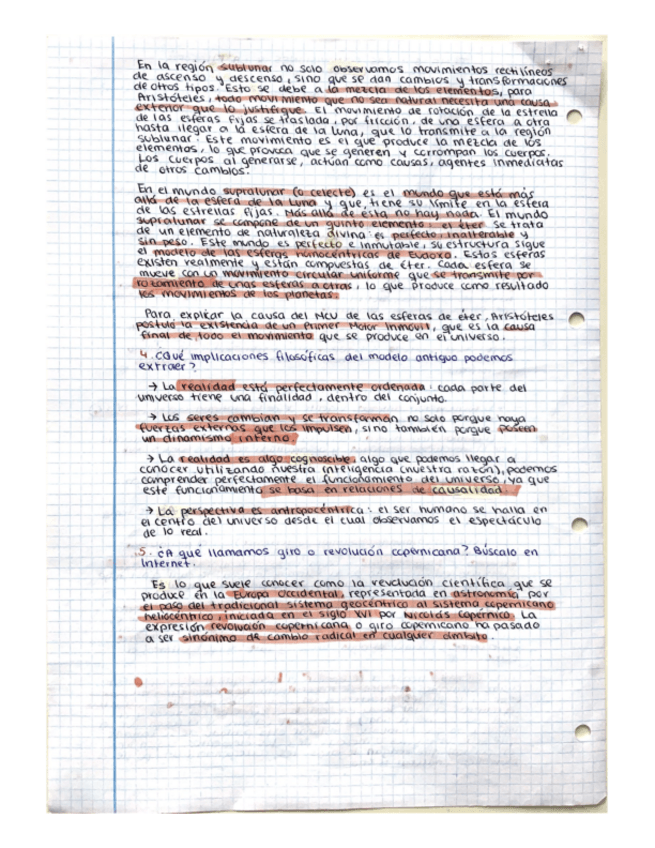 En la región sublunar no solo observamos movimientos rectilíneos
de ascenso y descenso, sino que se dan cambios y transformaciones
de otros tipos. Esto se debe a la mezcla de los elementos, para
Aristóteles, todo movimiento que no sea natural necesita una causa
exterior que lo justifique. El movimiento de rotación de la estrella
de las esferas fijas se traslada, por fricción, de una esfera a otra
hasta llegar a la esfera de la luna, que lo transmite a la región
sublunar. Este movimiento es el que produce la mezcla de los
elementos, lo que provoca que se generen y corrompan los cuerpos.
Los cuerpos al generarse, actúan como causas, agentes inmediatas
de otros cambios.
En el mundo supralunar (o celeste) es el mundo que está más
allá de la esfera de la Luna y que, tiene su límite en la esfera
de las estrellas fijas. Más allá de ésta no hay nada. El mundo
supralunar se compone de un quinto elemento, el éter. Se trata
de un elemento de naturaleza divina: es perfecto inalterable y
sin peso. Este mundo es perfecto e inmutable, su estructura sigue
el modelo de las esferas homocéntricas de Eudoxo. Estas esferas
existen realmente y están compuestas de éter. Cada esfera se
mueve con un movimiento circular uniforme que se transmite por
rozamiento de unas esferas a otras, lo que produce como resultado
los movimientos de los planetas.
Para explicar la causa del MCU de las esferas de éter, Aristóteles
postuló la existencia de un Primer Motor Inmóvil, que es la causa
final de todo el movimiento que se produce en el universo.
4. ¿Qué implicaciones filosóficas del modelo antiguo podemos
extraer?
→ La realidad está perfectamente ordenada: cada parte del
universo tiene una finalidad, dentro del conjunto.
→ Los seres cambian y se transforman no solo porque haya
fuerzas externas que los impulsen, sino también porque poseen
un dinamismo interno.
→ La realidad es algo cognoscible, algo que podemos llegar a
conocer utilizando nuestra inteligencia (nuestra razón), podemos
comprender perfectamente el funcionamiento del universo, ya que
este funcionamiento se basa en relaciones de causalidad.
→ La perspectiva es antropocéntrica: el ser humano se halla en
el centro del universo desde el cual observamos el espectáculo
de lo real.
5. ¿A qué llamamos giro o revolución copernicana? Búscalo en
Internet.
Es lo que suele conocer como la revolución científica que se
produce en la Europa Occidental, representada en astronomía por
el paso del tradicional sistema geocéntrico al sistema copernicano
heliocéntrico, iniciada en el siglo XVI por Nicolás Copérnico. La
expresión revolución copernicana o giro copernicano ha pasado
a ser sinónimo de cambio radical en cualquier ámbito.